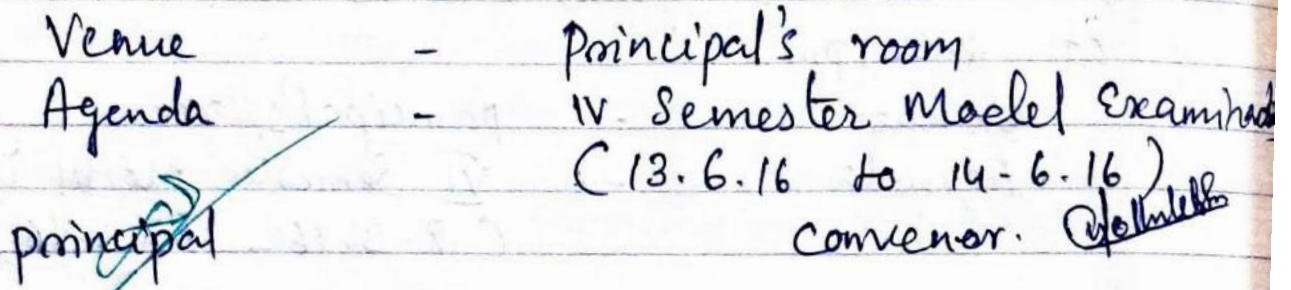 Venue - Principal's room
Agenda - IV Semester Model Examinat
(13.6.16 to 14-6.16)
principal convenor.